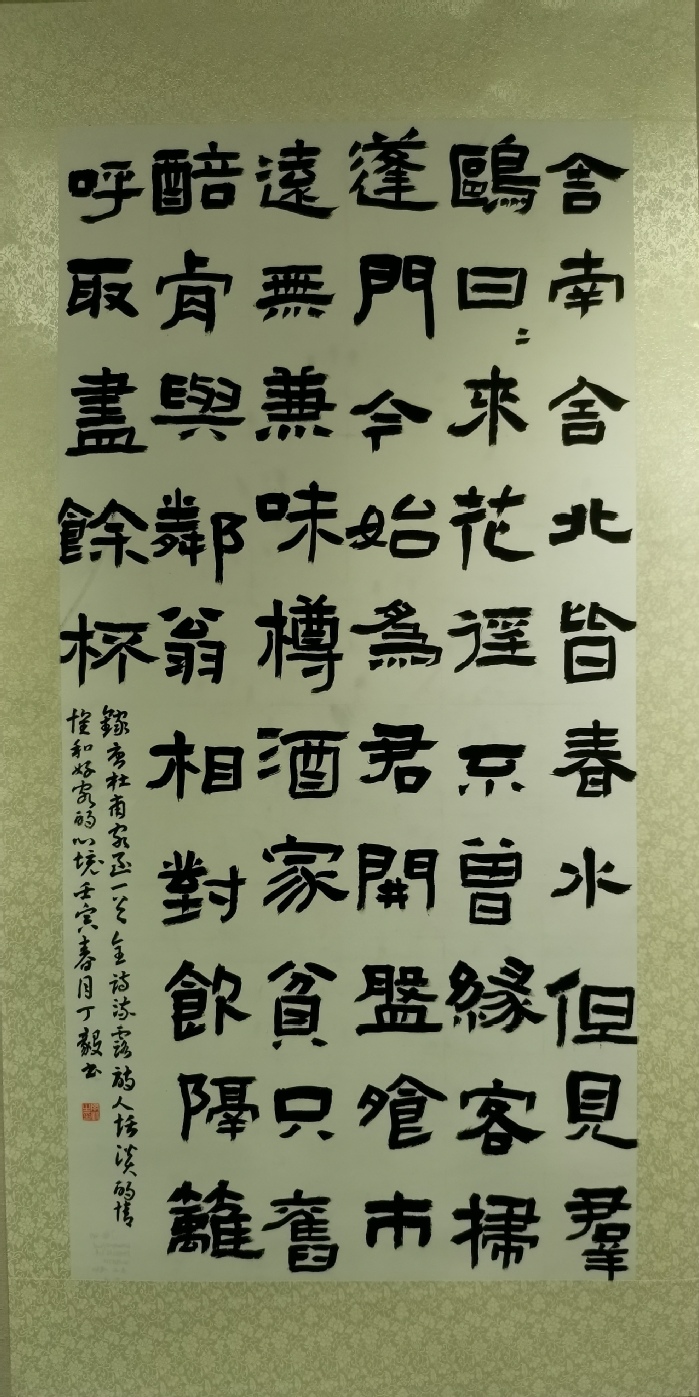 舍南舍北皆春水但見羣
鷗日〻來花徑不曾緣客掃
蓬門今始為君開盤飧市
遠無兼味樽酒家貧只舊
醅肯與鄰翁相對飲隔籬
呼取盡餘杯
錄唐杜甫客至一首全詩流露詩人恬淡的情
懷和好客的心境壬寅春月丁毅書